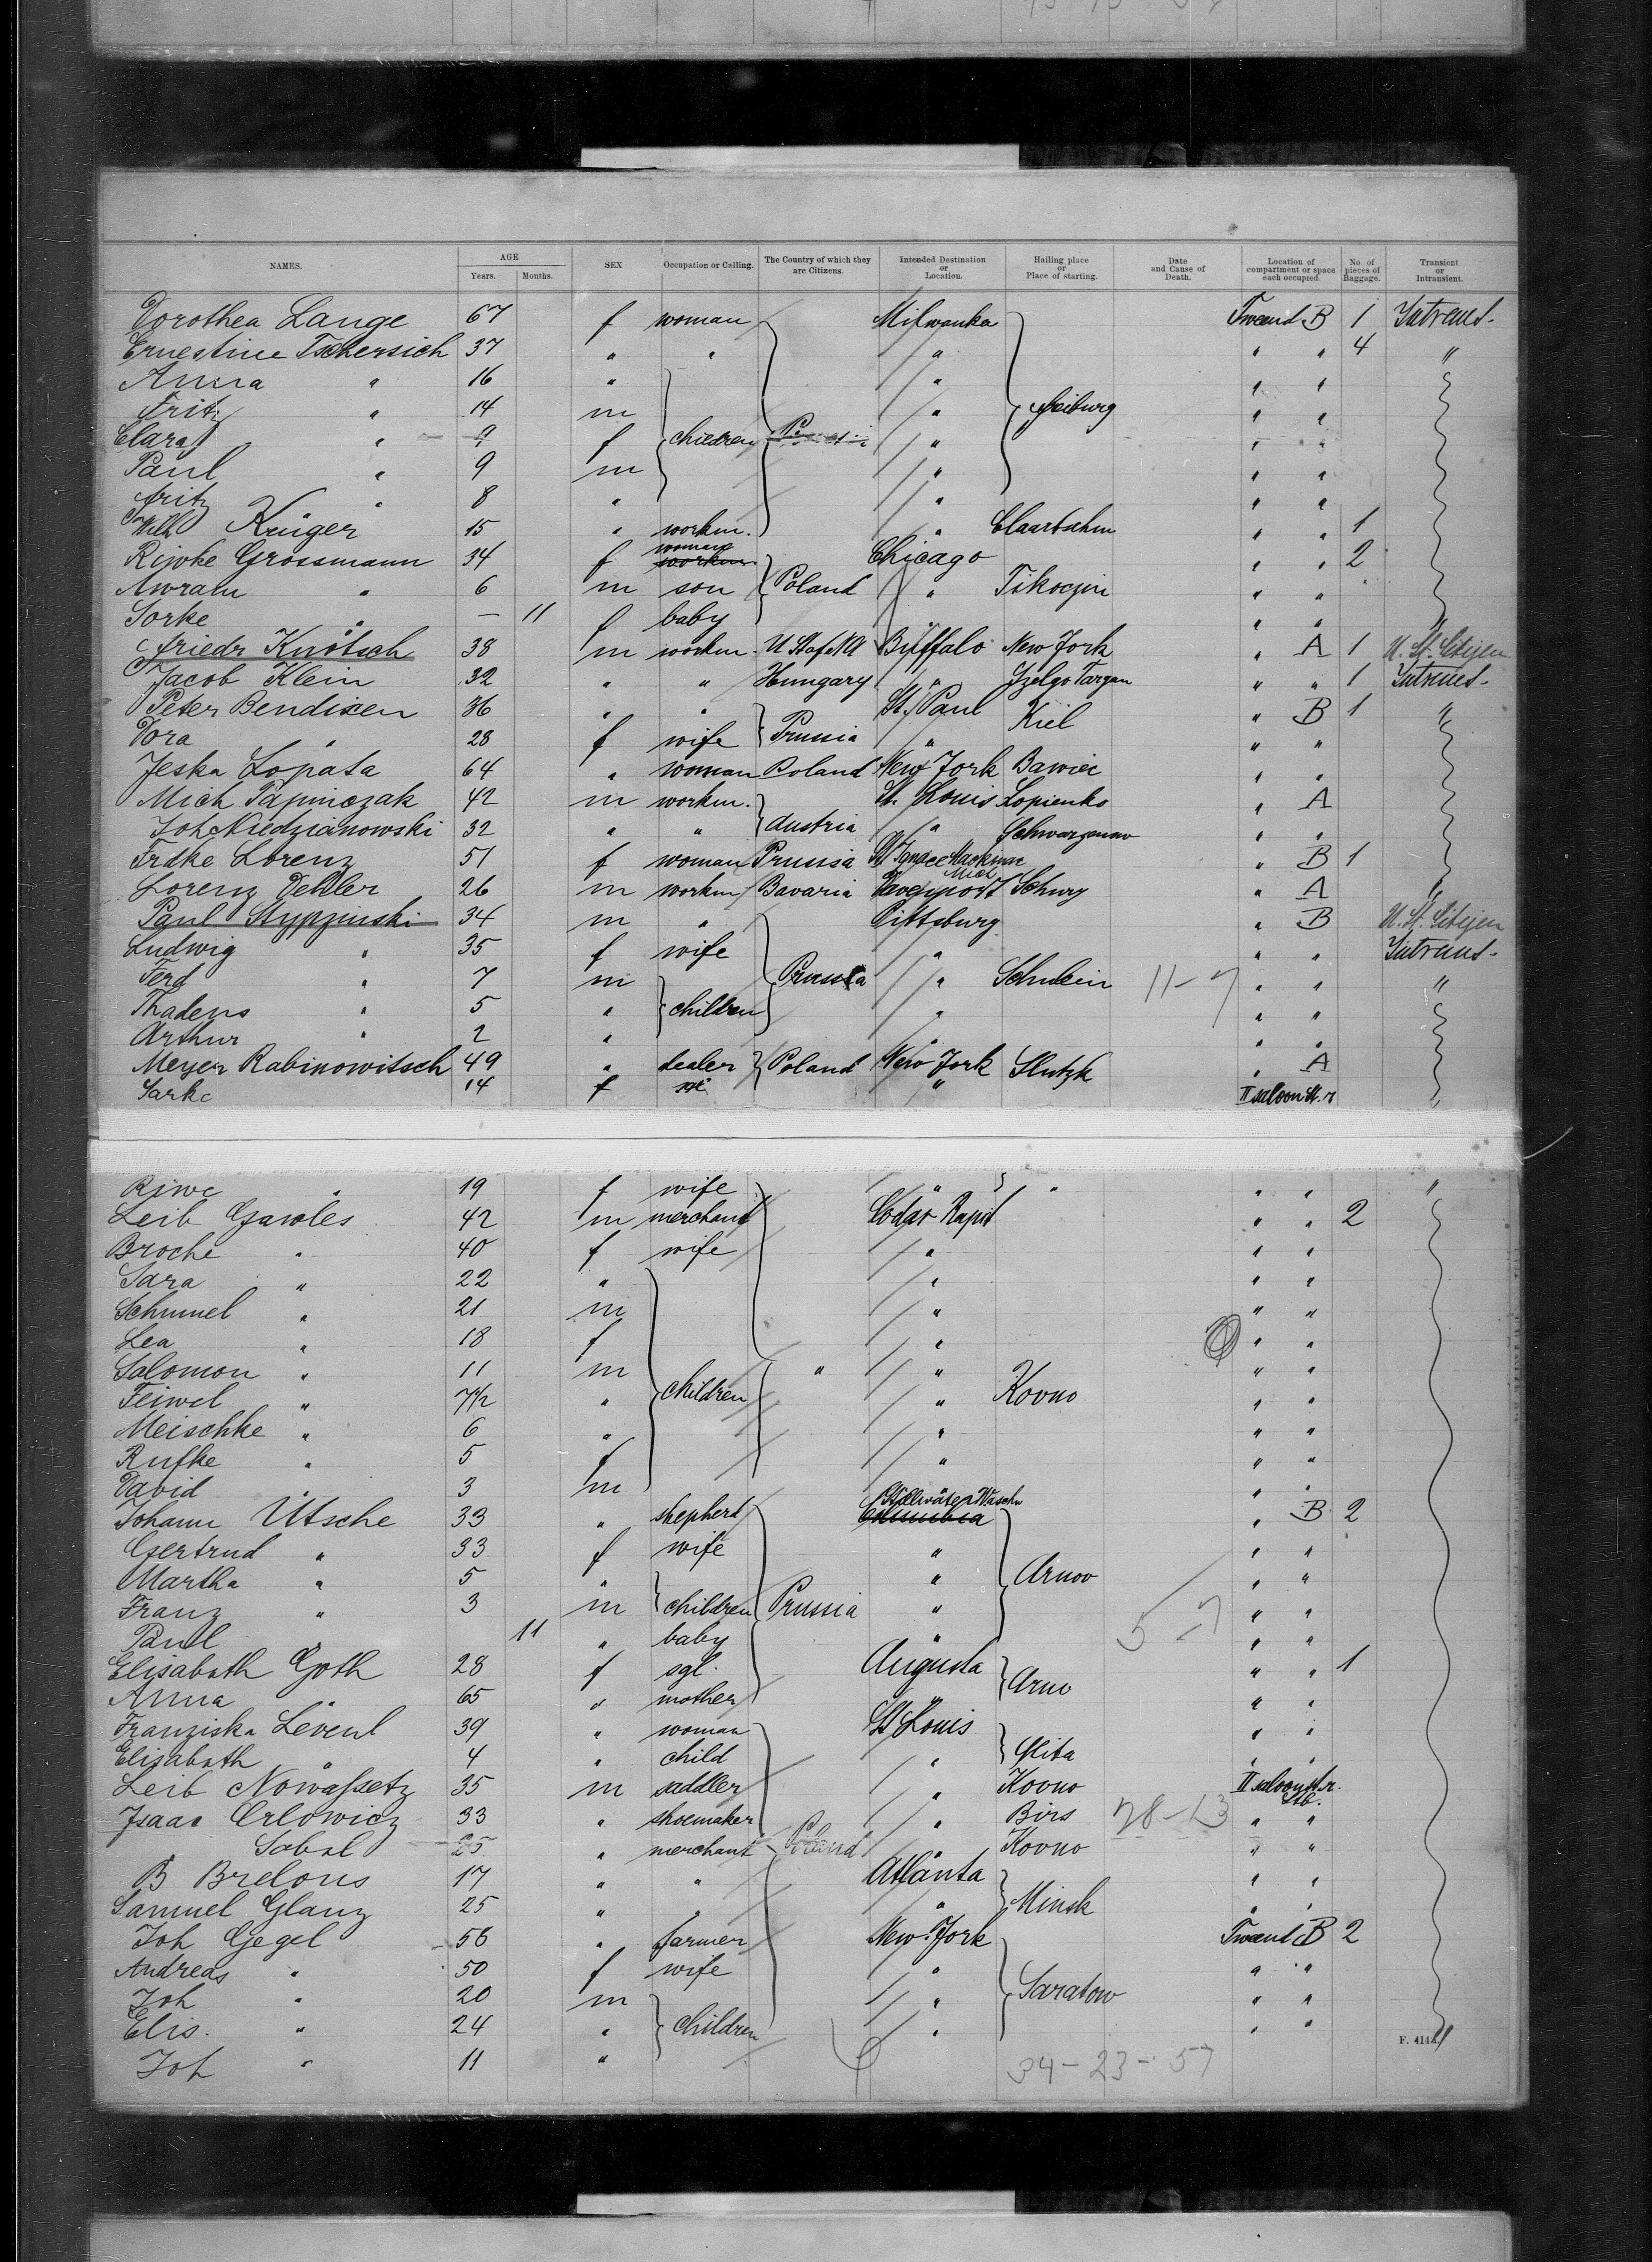 NAMES. AGE Years. Months. SEX Occupation or Calling. The Country of which they are Citizens. Intended Destination or Location. Hailing place or Place of starting. Date and Cause of Death. Location of compartment or space each occupied. No. of pieces of Baggage. Transient or Intransient.
Dorothea Lange 67 f woman Milwauka B 1 Intranst.
Ernestine Tschersich 37 " " " " " 4 "
Anna " 16 " " " "
Fritz " 14 m " " "
Clara " 9 f children " " "
Paul " 9 m " " "
Fritz " 8 " " " "
Wilh Krüger 15 " workm. " " " 1
Riwke Grossmann 34 f woman workm. Chicago " " 2
Awram " 6 m son Poland " Tikoczin " "
Sorke " — 11 f baby " "
Friedr Knötsch 38 m workm. U St of NA Buffalo New York " A 1 U. St. Citizen
Jacob Klein 32 " " Hungary " " " 1 Intranst.
Peter Bendixen 36 " " St. Paul Kiel " B 1 "
Dora " 28 f wife Prussia " " "
Jeska Lopata 64 " woman Poland New York " "
Mich 42 m workm. St. Louis Lopienko " A
Joh Niedzianowski 32 " " Austria " Schwarzenau " "
Frdke Lorenz 51 f woman Prussia St Ignace Mackinac Mich " B 1
Lorenz 26 m workm Bavaria Davenport " A "
Paul Stypzinski 34 m " Pittsburg " B U. St. Citizen
Ludwig " 35 f wife " " " Intranst.
Ferd " 7 m Prussia " Schubin 11-7 " " "
Thadeus " 5 " children " " "
Arthur " 2 " " "
Meyer Rabinowitsch 49 " dealer Poland New York Slutzk " A
Sarke 14 f " II saloon
Riwe " 19 f wife " " " " "
Leib Gawoles 42 m merchant Codar Rapid " " 2
Broche " 40 f wife " " "
Sara " 22 " " " "
Schmuel " 21 m " " "
Lea " 18 f " " "
Salomon " 11 m " " " "
Feiwel " 7½ " children " Kovno " "
Meischke " 6 " " " "
Rufke " 5 f " " "
David 3 m " "
Johann Utsche 33 " shepherd Stillwater Columbia " B 2
Gertrud " 33 f wife " " "
Martha " 5 " " Arnov " "
Franz " 3 m children Prussia " " "
Paul " 11 " baby " 5-7 " "
Elisabath Goth 28 f sgl. Augusta " " 1
Anna " 65 " mother " Arno " "
Franziska 39 " woman St Louis " "
Elisabath " 4 " child " " "
Leib 35 m saddler " Kovno II saloon
Isaac Orlowicz 33 " shoemaker " Birs 78-13 " "
Sobol 25 " merchant Poland " Kovno " "
B Brelous 17 " " Atlanta " "
Samuel Glanz 25 " " " Minsk " "
Joh Gegel 56 " farmer New York B 2
Andreas " 50 f wife " " "
Joh " 20 m " Saratow " "
Elis. " 24 " children " " "
Joh " 11 "
34-23-57